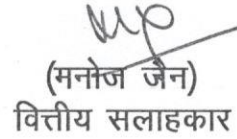 (मनोज जैन)
वित्तीय सलाहकार